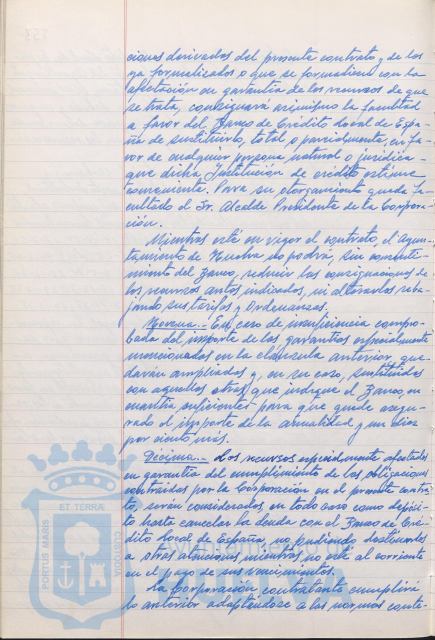 ciones derivadas del presente contrato y de los
ya formalizados o que se formalicen con la
afectación en garantía de los recursos de que
se trata, consignará asimismo la facultad
a favor del Banco de Crédito Local de Espa-
ña de sustituirlo, total o parcialmente, en fa-
vor de cualquier persona natural o jurídica
que dicha Institución de crédito estime
conveniente. Para su otorgamiento queda fa-
cultado el Sr. Alcalde Presidente de la Corpora-
ción.
Mientras esté en vigor el contrato, el Ayun-
tamiento de Huelva no podrá, sin consenti-
miento del Banco, reducir las consignaciones de
los recursos antes indicados, ni alterarlos reba-
jando sus tarifas y Ordenanzas.
Novena.- En caso de insuficiencia compro-
bada del importe de las garantías especialmente
mencionadas en la cláusula anterior, que-
darán ampliadas y, en su caso, sustituidas
con aquellas otras que indique el Banco, en
cuantía suficiente para que quede asegu-
rado el importe de la anualidad y un diez
por ciento más.
Décima.- Los recursos especialmente afectados
en garantía del cumplimiento de las obligaciones
contraídas por la Corporación en el presente contra-
to, serán considerados en todo caso como depósi-
to hasta cancelar la deuda con el Banco de Cré-
dito Local de España, no pudiendo destinarlos
a otras atenciones mientras no esté al corriente
en el pago de sus vencimientos.
La Corporación contratante cumplirá
lo anterior adaptándose a las normas conte-
PORTUS MARIS
ET TERRAE
CUSTODIA